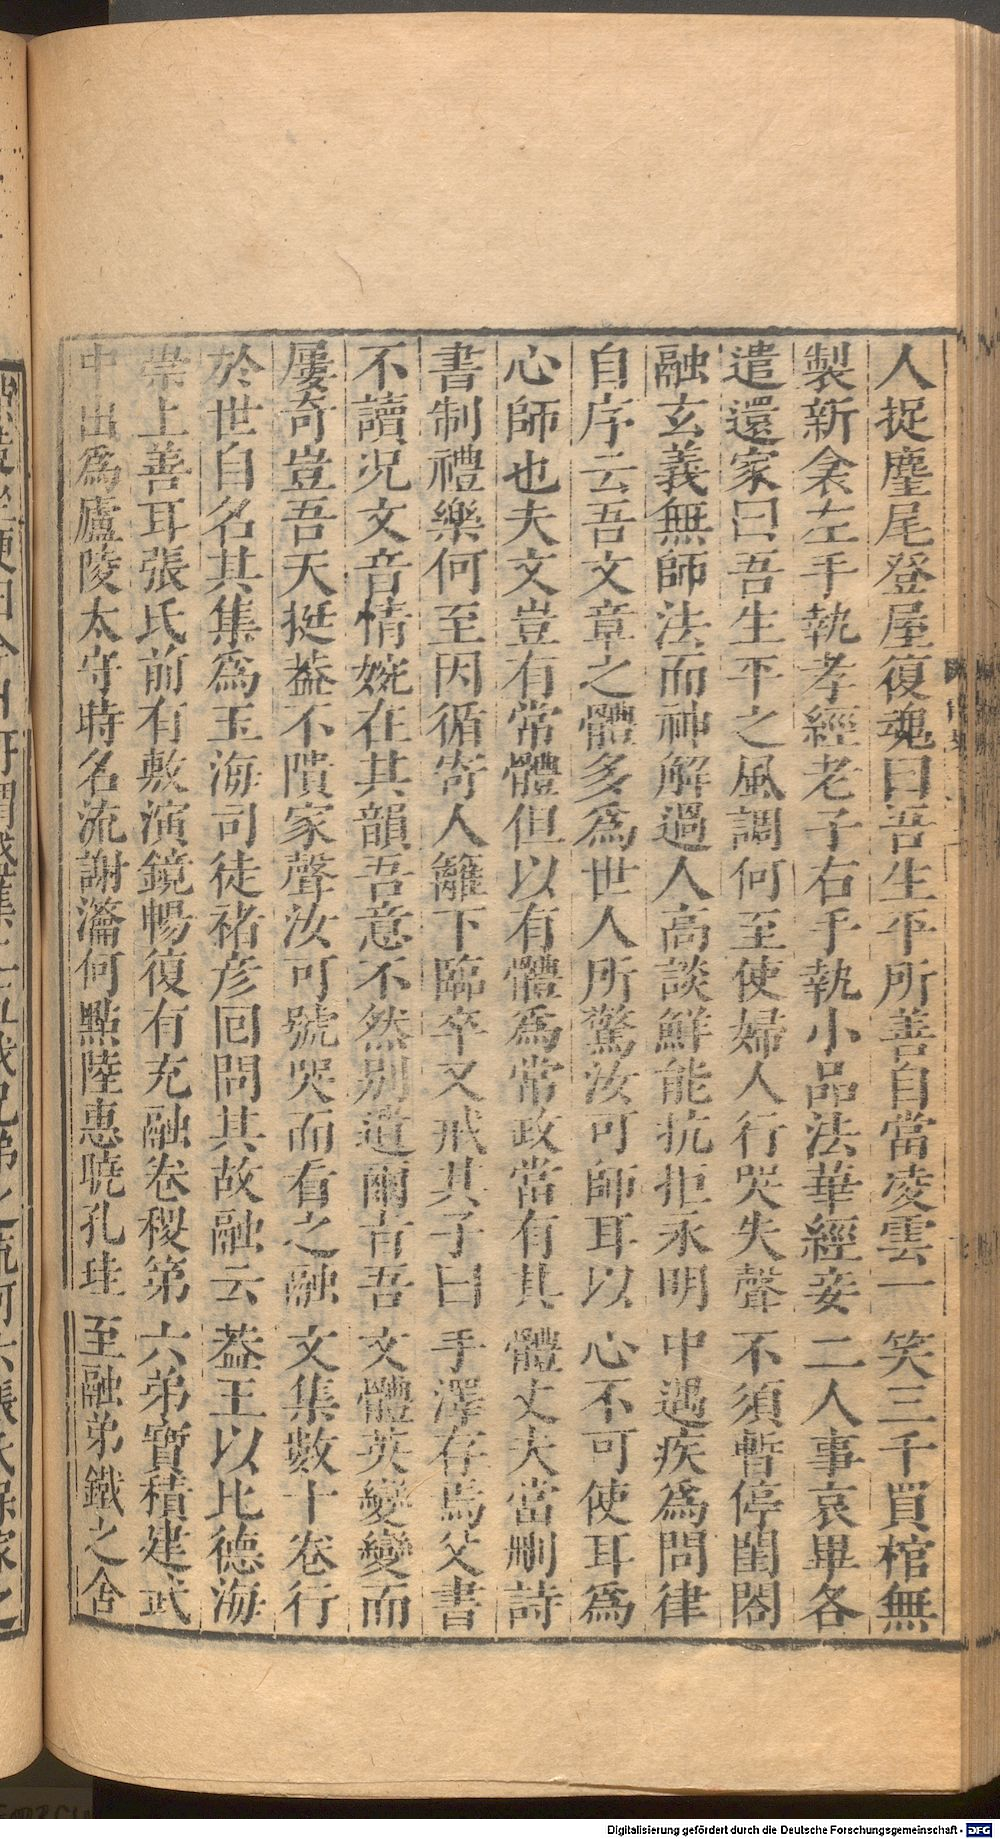 人捉麈尾登屋復魂曰吾生平所善自當凌雲一笑三千買棺無
製新衾左手執孝經老子右手執小品法華經妾二人事哀畢各
遣還家曰吾生平之風調何至使婦人行哭失聲不須暫停閨閤
融玄義無師法而神解過人高談鮮能抗拒永明中遇疾爲問律
自序云吾文章之體多爲世人所驚汝可師耳以心不可使耳爲
心師也夫文豈有常體但以有體爲常政當有其體丈夫當刪詩
書制禮樂何至因循寄人籬下臨卒又戒其子曰手澤存焉父書
不讀况文音情婉在其韻吾意不然别遺爾音吾文體英變變而
屢奇豈吾天挺葢不隤家聲汝可號哭而看之融文集數十卷行
於世自名其集爲玉海司徒褚彦囘問其故融云葢玉以比德海
崇上善耳張氏前有敷演鏡暢復有充融卷稷第六弟寶積建武
中出爲廬陵太守時名流謝瀹何點陸惠曉孔珪至融弟鐵之舍
Digitalisierung gefördert durch die Deutsche Forschungsgemeinschaft - DFG